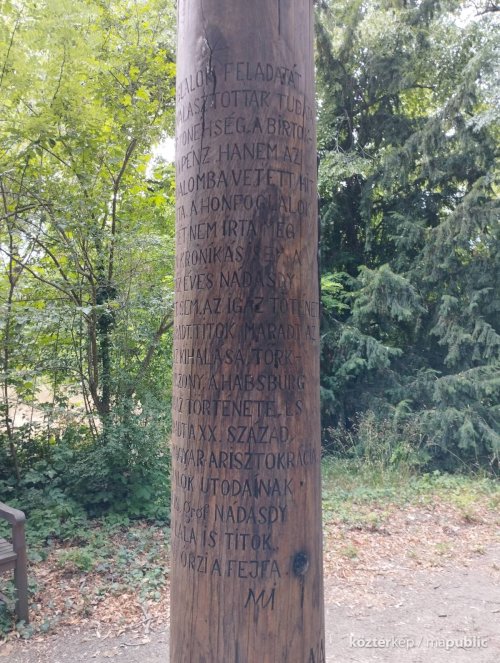 ALOK FELADATÁT
LASZTOTTAK TUDA
NEHSÉG, A BIRTO
PÉNZ HANEM AZ
ALOMBA VETETT HIT
TA A HONFOGLALOK
T NEM ÍRTA MEG
KRÓNIKÁS SEM A
ÉVES NÁDASDY
SEM. AZ IGAZ TÖTÉNET
TITOK MARADT AZ
KIHALÁSA, TÖRK-
ZONY, A HABSBURG
Z TÖRTÉNETE. ÉS
DT A XX. SZÁZAD
GYAR ARISZTOKRÁCIA
OK UTÓDAINAK
Gróf NÁDASDY
LA IS TITOK.
ŐRZI A FEJFA
közterkep / mapublic